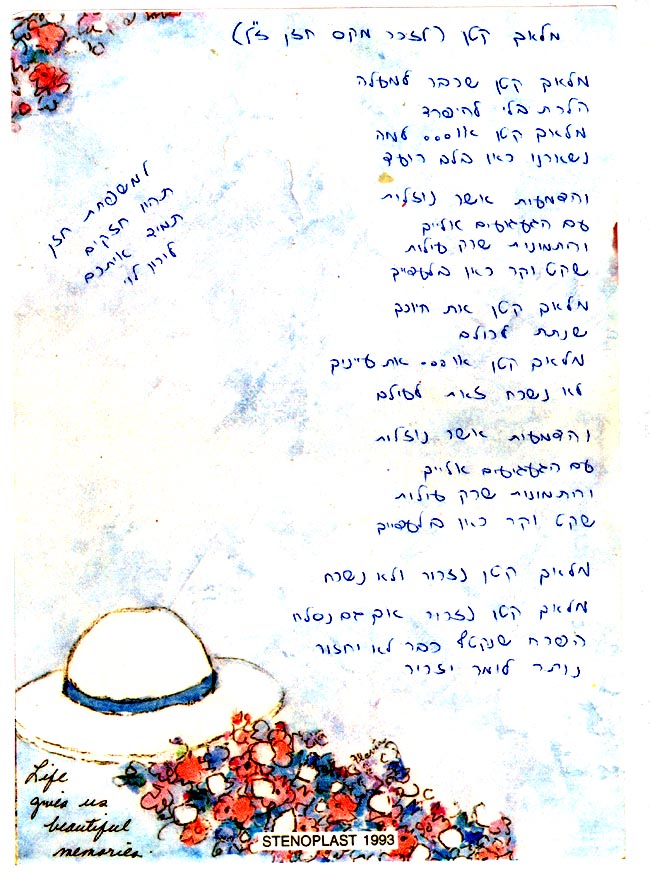 מלאך קטן (לזכר מקס חזן ז"ל)
מלאך קטן שכבר למעלה
הלכת בלי להיפרד
מלאך קטן או... למה
נשארנו כאן בלב רועד
והדמעות אשר נוזלות
עם הגעגועים אלייך
והתמונות שרק עולות
שקט וקר כאן בלעדייך
מלאך קטן את חיוכך
שנתת לכולם
מלאך קטן או... את עינייך
לא נשכח זאת לעולם
והדמעות אשר נוזלות
עם הגעגועים אלייך
והתמונות שרק עולות
שקט וקר כאן בלעדייך
מלאך קטן נזכור ולא נשכח
מלאך קטן נזכור אך גם נסלח
הפרח שנקטף כבר לא יחזור
נותר לומר יזכור
למשפחת חזן
תהיו חזקים
תמיד איתכם
לירון לוי
Life
gives us
beautiful
memories.
STENOPLAST 1993